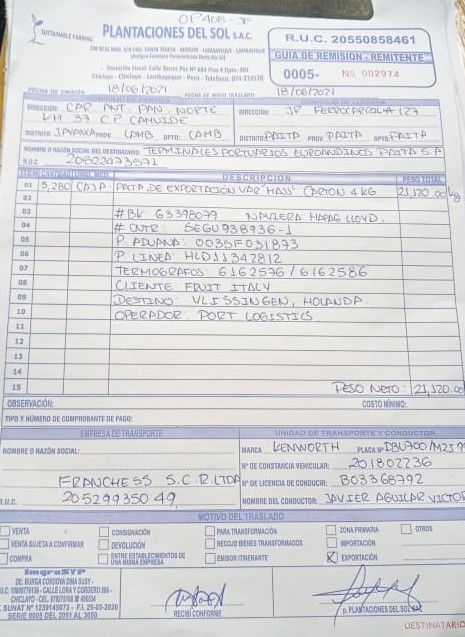 OP408-JF
SUSTAINABLE FARMING
PLANTACIONES DEL SOL S.A.C.
Domicilio Fiscal: Calle Torres Paz Nº 683 Piso 4 Dpto. 401
Chiclayo - Chiclayo - Lambayeque - Perú - Telefono: 074-233520
R.U.C. 20550858461
GUIA DE REMISION - REMITENTE
0005- Nº 002974
FECHA DE EMISIÓN: 18/06/2021
FECHA DE INICIO TRASLADO: 18/06/2021
DOMICILIO DE PARTIDA
DIRECCIÓN: CAR. ANT. PAN. NORTE
KM 37 CP CAHUIDE
DISTRITO: JAYANCA PROV. LAMB DPTO: LAMB
DOMICILIO DE LLEGADA
DIRECCIÓN: JR FERROCARRIL #127
DISTRITO: PAITA PROV. PAITA DPTO: PAITA
NOMBRE O RAZÓN SOCIAL DEL DESTINATARIO: TERMINALES PORTUARIOS EUROANDINOS PAITA S.A
R.U.C.
ITEM CANTIDAD UNID. MED. DESCRIPCION PESO TOTAL
01 5,280 CAJA PALTA DE EXPORTACIÓN VAR "HASS" CARTON 4 KG 21,120.00 kg
02
03 #BK 63398079 NAVIERA: HAPAG LLOYD.
04 # CNTR: SEGU938936-1
05 P. ADUANA: 0035F031873
06 P LINEA: HLD11342812
07 TERMOGRAFOS: 6162576 / 6162586
08 CLIENTE: FRUIT ITALY
09 DESTINO: VLISSINGEN, HOLANDA.
10 OPERADOR: PORT LOGISTICS
11
12
13
14
15 PESO NETO: 21,120.00
OBSERVACIÓN: COSTO MÍNIMO:
TIPO Y NÚMERO DE COMPROBANTE DE PAGO:
EMPRESA DE TRANSPORTE
NOMBRE O RAZÓN SOCIAL:
FRANCHESS S.C.R.LTDA
R.U.C. 20529935049
UNIDAD DE TRANSPORTE Y CONDUCTOR
MARCA KENWORTH PLACA Nº
Nº DE CONSTANCIA VEHICULAR: 201802236
Nº DE LICENCIA DE CONDUCIR: B03368792
NOMBRE DEL CONDUCTOR: JAVIER AGUILAR VICTOR
MOTIVO DEL TRASLADO
VENTA
VENTA SUJETA A CONFIRMAR
COMPRA
CONSIGNACIÓN
DEVOLUCIÓN
ENTRE ESTABLECIMIENTOS DE
UNA MISMA EMPRESA
PARA TRANSFORMACIÓN
RECOJO BIENES TRANSFORMADOS
EMISOR ITINERANTE
ZONA PRIMARIA
IMPORTACIÓN
X EXPORTACIÓN
OTROS
ImgraSYP
DE: BURGA CORDOVA DINA SUSY -
CHICLAYO - CEL.
SUNAT Nº 1239145073 - F.I. 29-05-2020
SERIE 0005 DEL 2051 AL 3050
RECIBÍ CONFORME
p. PLANTACIONES DEL SOL SAC
DESTINATARIO